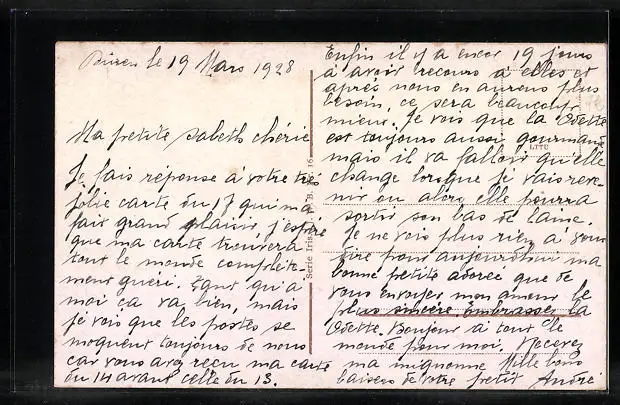 le 19 Mars 1928
Ma petite sabeth chérie
Je fais réponse à votre très
jolie carte du 17 qui m'a
fait grand plaisir, j'espère
que ma carte trouvera
tout le monde complète-
ment guéri. Tant qu'à
moi ca va bien, mais
je vois que les postes se
moquent toujours de nous
car vous avez reçu ma carte
du 14 avant celle du 13.
Série Iris
Enfin il y a encor 19 jours
à avoir recours à elles et
après nous en aurons plus
besoin, ce sera beaucoup
mieux. Je vois que la Odette
est toujours aussi gourmande
mais il va falloir qu'elle
change lorsque je vais reve-
nir ou alors elle pourra
sortir son bas de laine.
Je ne vois plus rien à vous
dire pour aujourd'hui ma
bonne petite adorée que de
vous envoyer mon amour le
plus sincère embrasser la
Odette. Bonjour à tout le
monde pour moi. Recevez
ma mignonne Mille bons
baisers de votre petit André